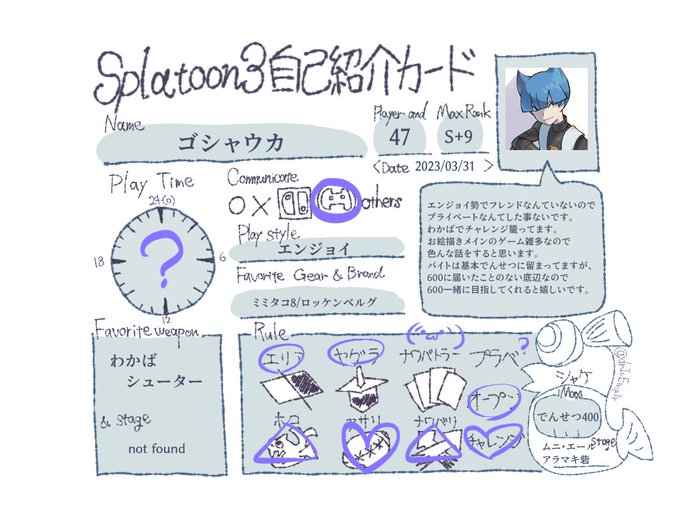 Splatoon3自己紹介カード
Name
ゴシャウカ
Player and
47
Max Rank
S+9
<Date 2023/03/31 >
Play Time
24(0)
18
6
12
?
Communicate
○ × others
Play style
エンジョイ
Favorite Gear & Brand
ミミタコ8/ロッケンベルグ
エンジョイ勢でフレンドなんていないので
プライベートなんてした事ないです。
わかばでチャレンジ籠ってます。
お絵描きメインのゲーム雑多なので
色んな話をすると思います。
バイトは基本でんせつに留まってますが、
600に届いたことのない底辺なので
600一緒に目指してくれると嬉しいです。
Favorite weapon
わかば
シューター
& Stage
not found
Rule
エリア
ヤグラ
ナワバトラー
プラベ
?
オープン
ホコ
アサリ
ナワバリ
チャレンジ
シャケ
Max
でんせつ400
Stage
ムニ・エール
アラマキ砦